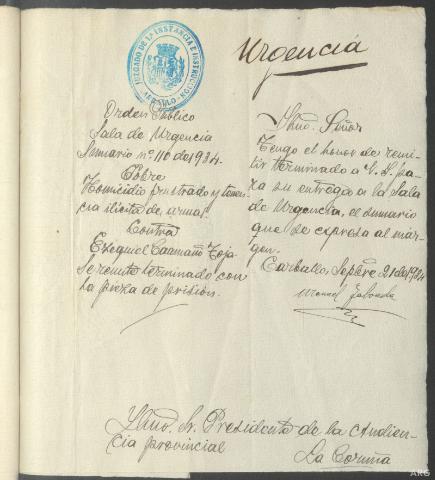 JUZGADO DE 1ª INSTANCIA E INSTRUCCION
CARBALLO
Urgencia
Orden Público
Sala de Urgencia
Sumario nº 110 de 1934.
Sobre
Homicidio frustrado y tenen-
cia ilícita de armas
Contra
Ezequiel Caamaño Toja
Se remite terminado con
la pieza de prisión.
Ilmo. Señor
Tengo el honor de remi-
tir terminado a V. I. pa-
ra su entrega a la Sala
de Urgencia, el sumario
que se expresa al már-
gen.
Carballo, Sepbre 21 de 1934
Manuel
Ilmo. Sr. Presidente de la Audien-
cia provincial
La Coruña
ARG